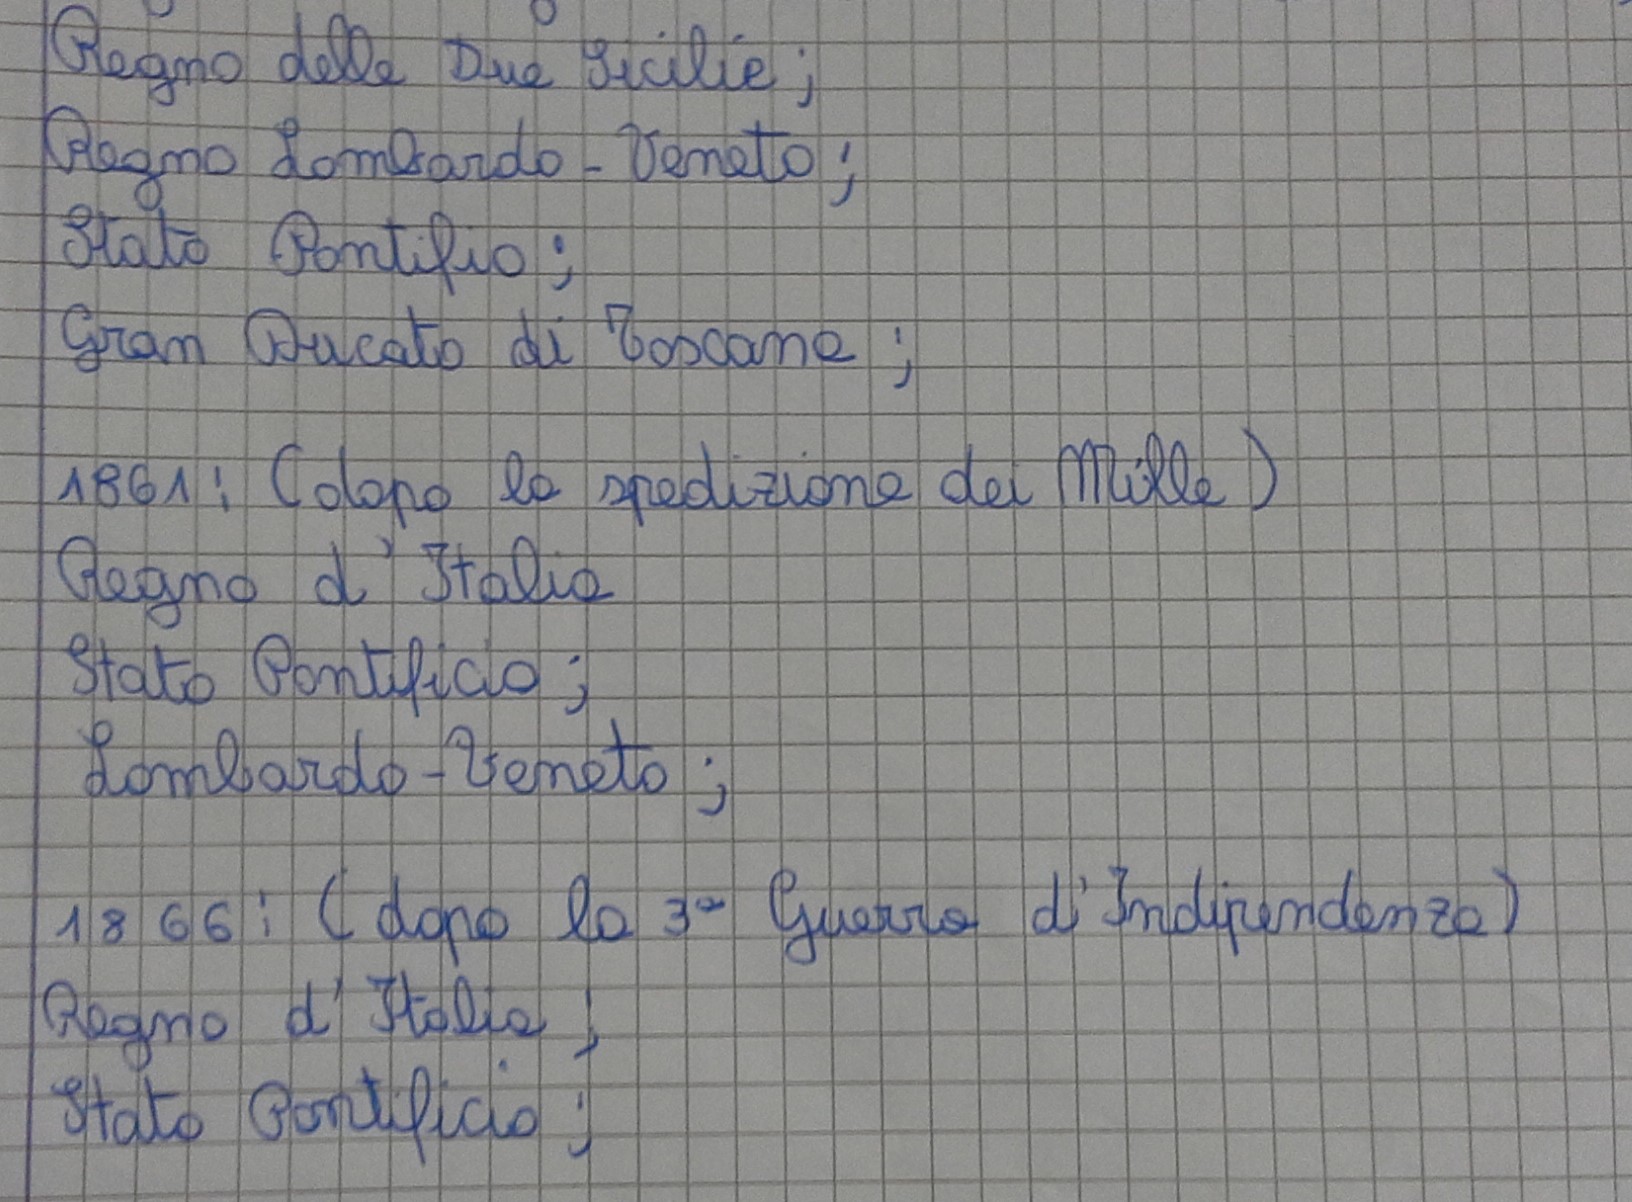 Regno delle Due Sicilie;
Regno Lombardo-Veneto;
Stato Pontifio;
Gran Ducato di Toscana;
1861: (dopo la spedizione dei Mille)
Regno d'Italia
Stato Pontificio;
Lombardo-Veneto;
1866: (dopo la 3ª Guerra d'Indipendenza)
Regno d'Italia;
Stato Pontificio;